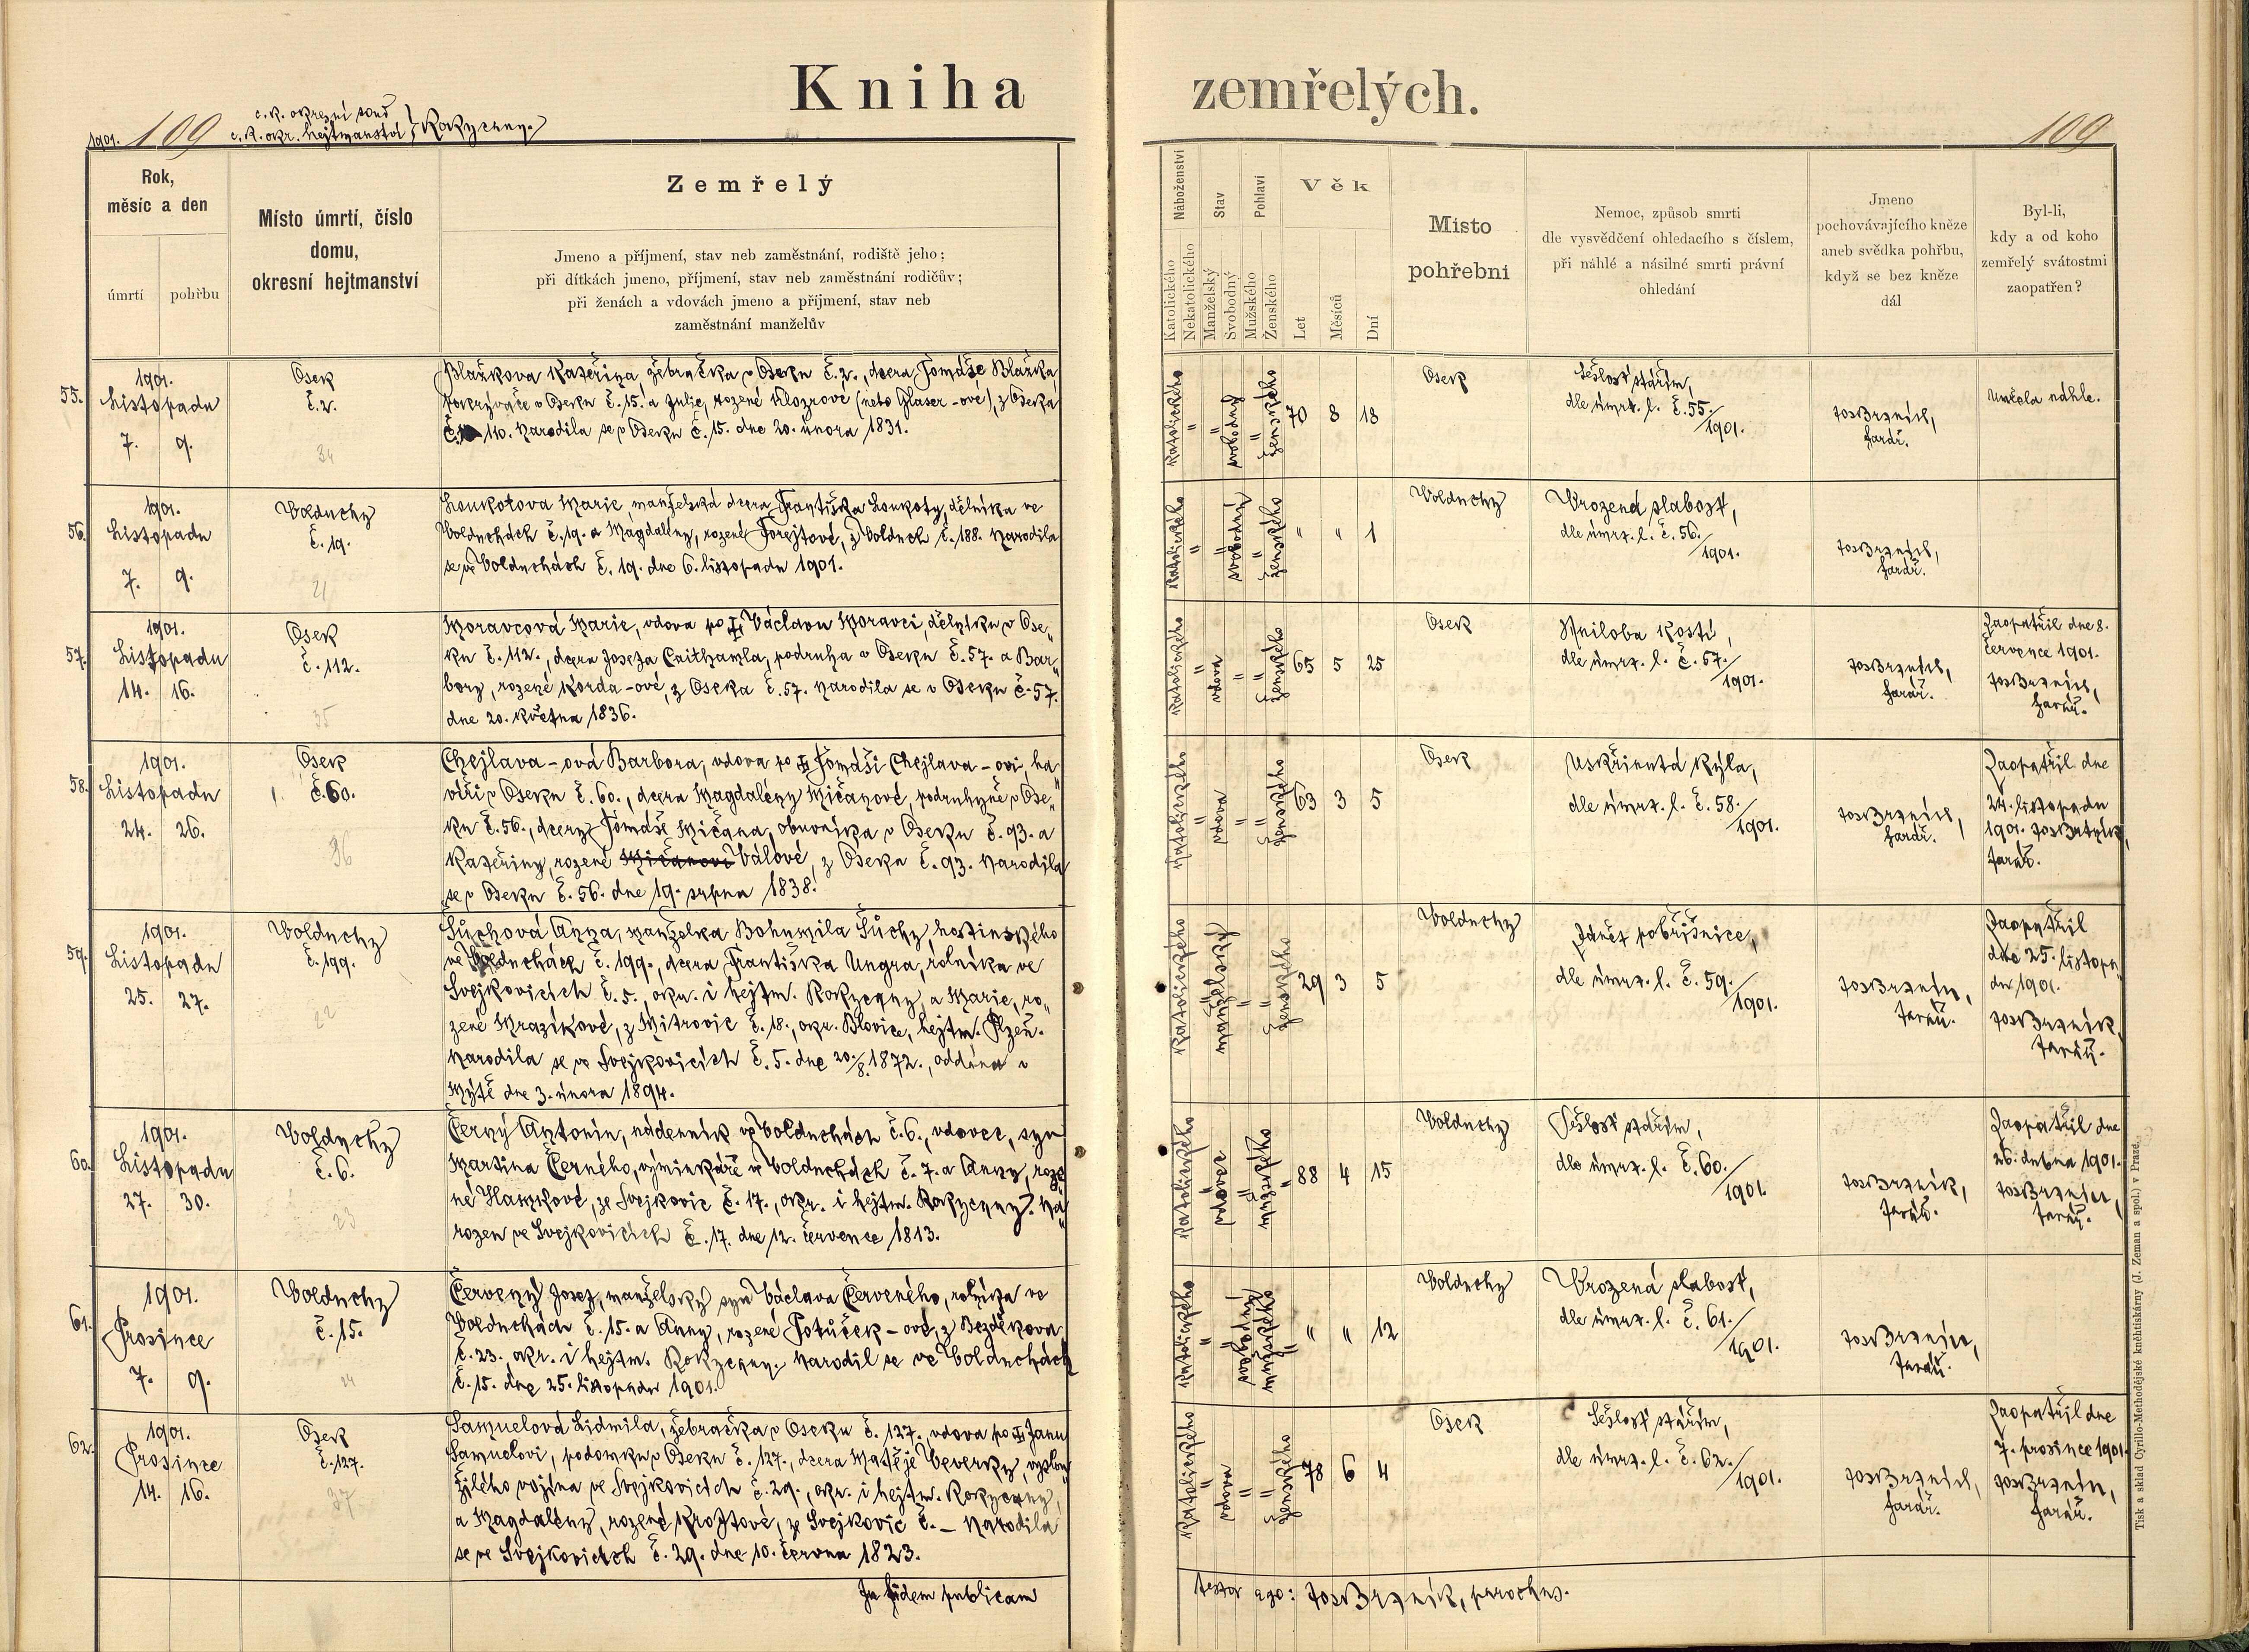 Kniha zemřelých.
1901. 109
c. k. okresní soud
c. k. okr. hejtmanství } Rokycany.
109
Rok,
měsíc a den
úmrtí
pohřbu
Místo úmrtí, číslo
domu,
okresní hejtmanství
Zemřelý
Jmeno a příjmení, stav neb zaměstnání, rodiště jeho;
při dítkách jmeno, příjmení, stav neb zaměstnání rodičův;
při ženách a vdovách jmeno a příjmení, stav neb
zaměstnání manželův
Náboženství
Katolického
Nekatolického
Stav
Manželský
Svobodný
Pohlaví
Mužského
Ženského
Věk
Let
Měsíců
Dní
Místo
pohřební
Nemoc, způsob smrti
dle vysvědčení ohledacího s číslem,
při náhlé a násilné smrti právní
ohledání
Jmeno
pochovávajícího kněze
aneb svědka pohřbu,
když se bez kněze
dál
Byl-li,
kdy a od koho
zemřelý svátostmi
zaopatřen?
55.
1901.
Listopadu
7. 9.
Osek
č. 2.
34
Blažkova Kateřina, žebračka v Oseku č. 2., dcera Tomáše Blažka,
pokrývače v Oseku č. 15. a Julie, rozené Klozrové (neto Glaser-ové), z Oseka
č. 110. Narodila se v Oseku č. 15. dne 20. února 1831.
katolického
"
svobodný
"
"
ženského
70 8 18
Osek
Sešlost stářím,
dle úmrt. l. č. 55./1901.
Jos Brzník,
farář.
Umřela náhle.
56.
1901.
Listopadu
7. 9.
Volduchy
č. 19.
21
Loukotova Marie, manželská dcera Františka Loukoty, dělníka ve
Volduchách č. 19. a Magdalény, rozené Forejtové, z Volduch č. 188. Narodila
se ve Volduchách č. 19. dne 6. listopadu 1901.
katolického
"
svobodný
"
"
ženského
" " 1
Volduchy
Vrozená slabosť,
dle úmrt. l. č. 56./1901.
Jos Brzník,
farář.
57.
1901.
Listopadu
14. 16.
Osek
č. 112.
35
Moravcová Marie, vdova po † Václavu Moravci, dělníku v Ose„
ku č. 112., dcera Josefa Caithamla, podruha v Oseku č. 57. a Bar„
bory, rozené Korda-ové, z Oseka č. 57. Narodila se v Oseku č. 57.
dne 20. května 1836.
katolického
"
vdova
"
"
ženského
65 5 25
Osek
Hniloba kostí,
dle úmrt. l. č. 57./1901.
Jos Brzník,
farář.
Zaopatřil dne 8.
července 1901.
Jos Brzník,
farář.
58.
1901.
Listopadu
24. 26.
Osek
č. 60.
36
Chejlava-ová Barbora, vdova po † Tomáši Chejlava-ovi, ha„
víři v Oseku č. 60., dcera Magdalény Mičanové, podruhyně v Ose„
ku č. 56., dcery Tomáše Mičana, obuvníka v Oseku č. 93. a
Kateřiny, rozené Mičanové Válové, z Oseku č. 93. Narodila
se v Oseku č. 56. dne 19. srpna 1838.
katolického
"
vdova
"
"
ženského
63 3 5
Osek
Uskřinutá kýla,
dle úmrt. l. č. 58./1901.
Jos Brzník,
farář.
Zaopatřil dne
24. listopadu
1901. Jos Brzník,
farář.
59.
1901.
Listopadu
25. 27.
Volduchy
č. 199.
22
Šůchová Anna, manželka Bohumila Šůchy, hostinského
ve Volduchách č. 199., dcera Františka Ungra, rolníka ve
Svejkovicích č. 5., okr. i hejtm. Rokycany a Marie, ro„
zené Mrazíkové, z Mitrovic č. 18., okr. Blovice, hejtm. Plzeň.
Narodila se ve Svejkovicích č. 5. dne 20./8. 1872., oddána v
Mýtě dne 3. února 1894.
katolického
"
manželský
"
"
ženského
29 3 5
Volduchy
Zánět pobřišnice,
dle úmrt. l. č. 59./1901.
Jos Brzník,
farář.
Zaopatřil
dne 25. listopa„
du 1901.
Jos Brzník,
farář.
60.
1901.
Listopadu
27. 30.
Volduchy
č. 6.
23
Černý Antonín, nádenník ve Volduchách č. 6., vdovec, syn
Martina Černého, výminkáře ve Volduchách č. 7. a Anny, roze„
né Hlamkové, ze Svejkovic č. 17., okr. i hejtm. Rokycany. Na„
rozen ve Svejkovicích č. 17. dne 12. července 1813.
katolického
"
vdovec
"
mužského
"
88 4 15
Volduchy
Sešlost stářím,
dle úmrt. l. č. 60./1901.
Jos Brzník,
farář.
Zaopatřil dne
26. dubna 1901.
Jos Brzník,
farář.
61.
1901.
Prosince
7. 9.
Volduchy
č. 15.
24
Červený Josef, manželský syn Václava Červeného, rolníka ve
Volduchách č. 15. a Anny, rozené Potůček-ové, z Bezděkova
č. 23. okr. i hejtm. Rokycany. Narodil se ve Volduchách
č. 15. dne 25. listopadu 1901.
katolického
"
svobodný
mužského
"
" " 12
Volduchy
Vrozená slabosť,
dle úmrt. l. č. 61./1901.
Jos Brzník,
farář.
62.
1901.
Prosince
14. 16.
Osek
č. 127.
37
Samuelová Lidmila, žebračka v Oseku č. 127., vdova po † Janu
Samuelovi, podomku v Oseku č. 127., dcera Matěje Veverky, vyslou„
žilého vojína ve Svejkovicích č. 29., okr. i hejtm. Rokycany,
a Magdalény, rozené Kroftové, ze Svejkovic č. – Narodila
se ve Svejkovicích č. 29. dne 10. června 1823.
katolického
"
vdova
"
"
ženského
78 6 4
Osek
Sešlost stářím,
dle úmrt. l. č. 62./1901.
Jos Brzník,
farář.
Zaopatřil dne
7. prosince 1901.
Jos Brzník,
farář.
In fidem publicam
testor ego: Jos Brzník, parochus.
Tisk a sklad Cyrillo-Methodějské knihtiskárny (J. Zeman a spol.) v Praze.